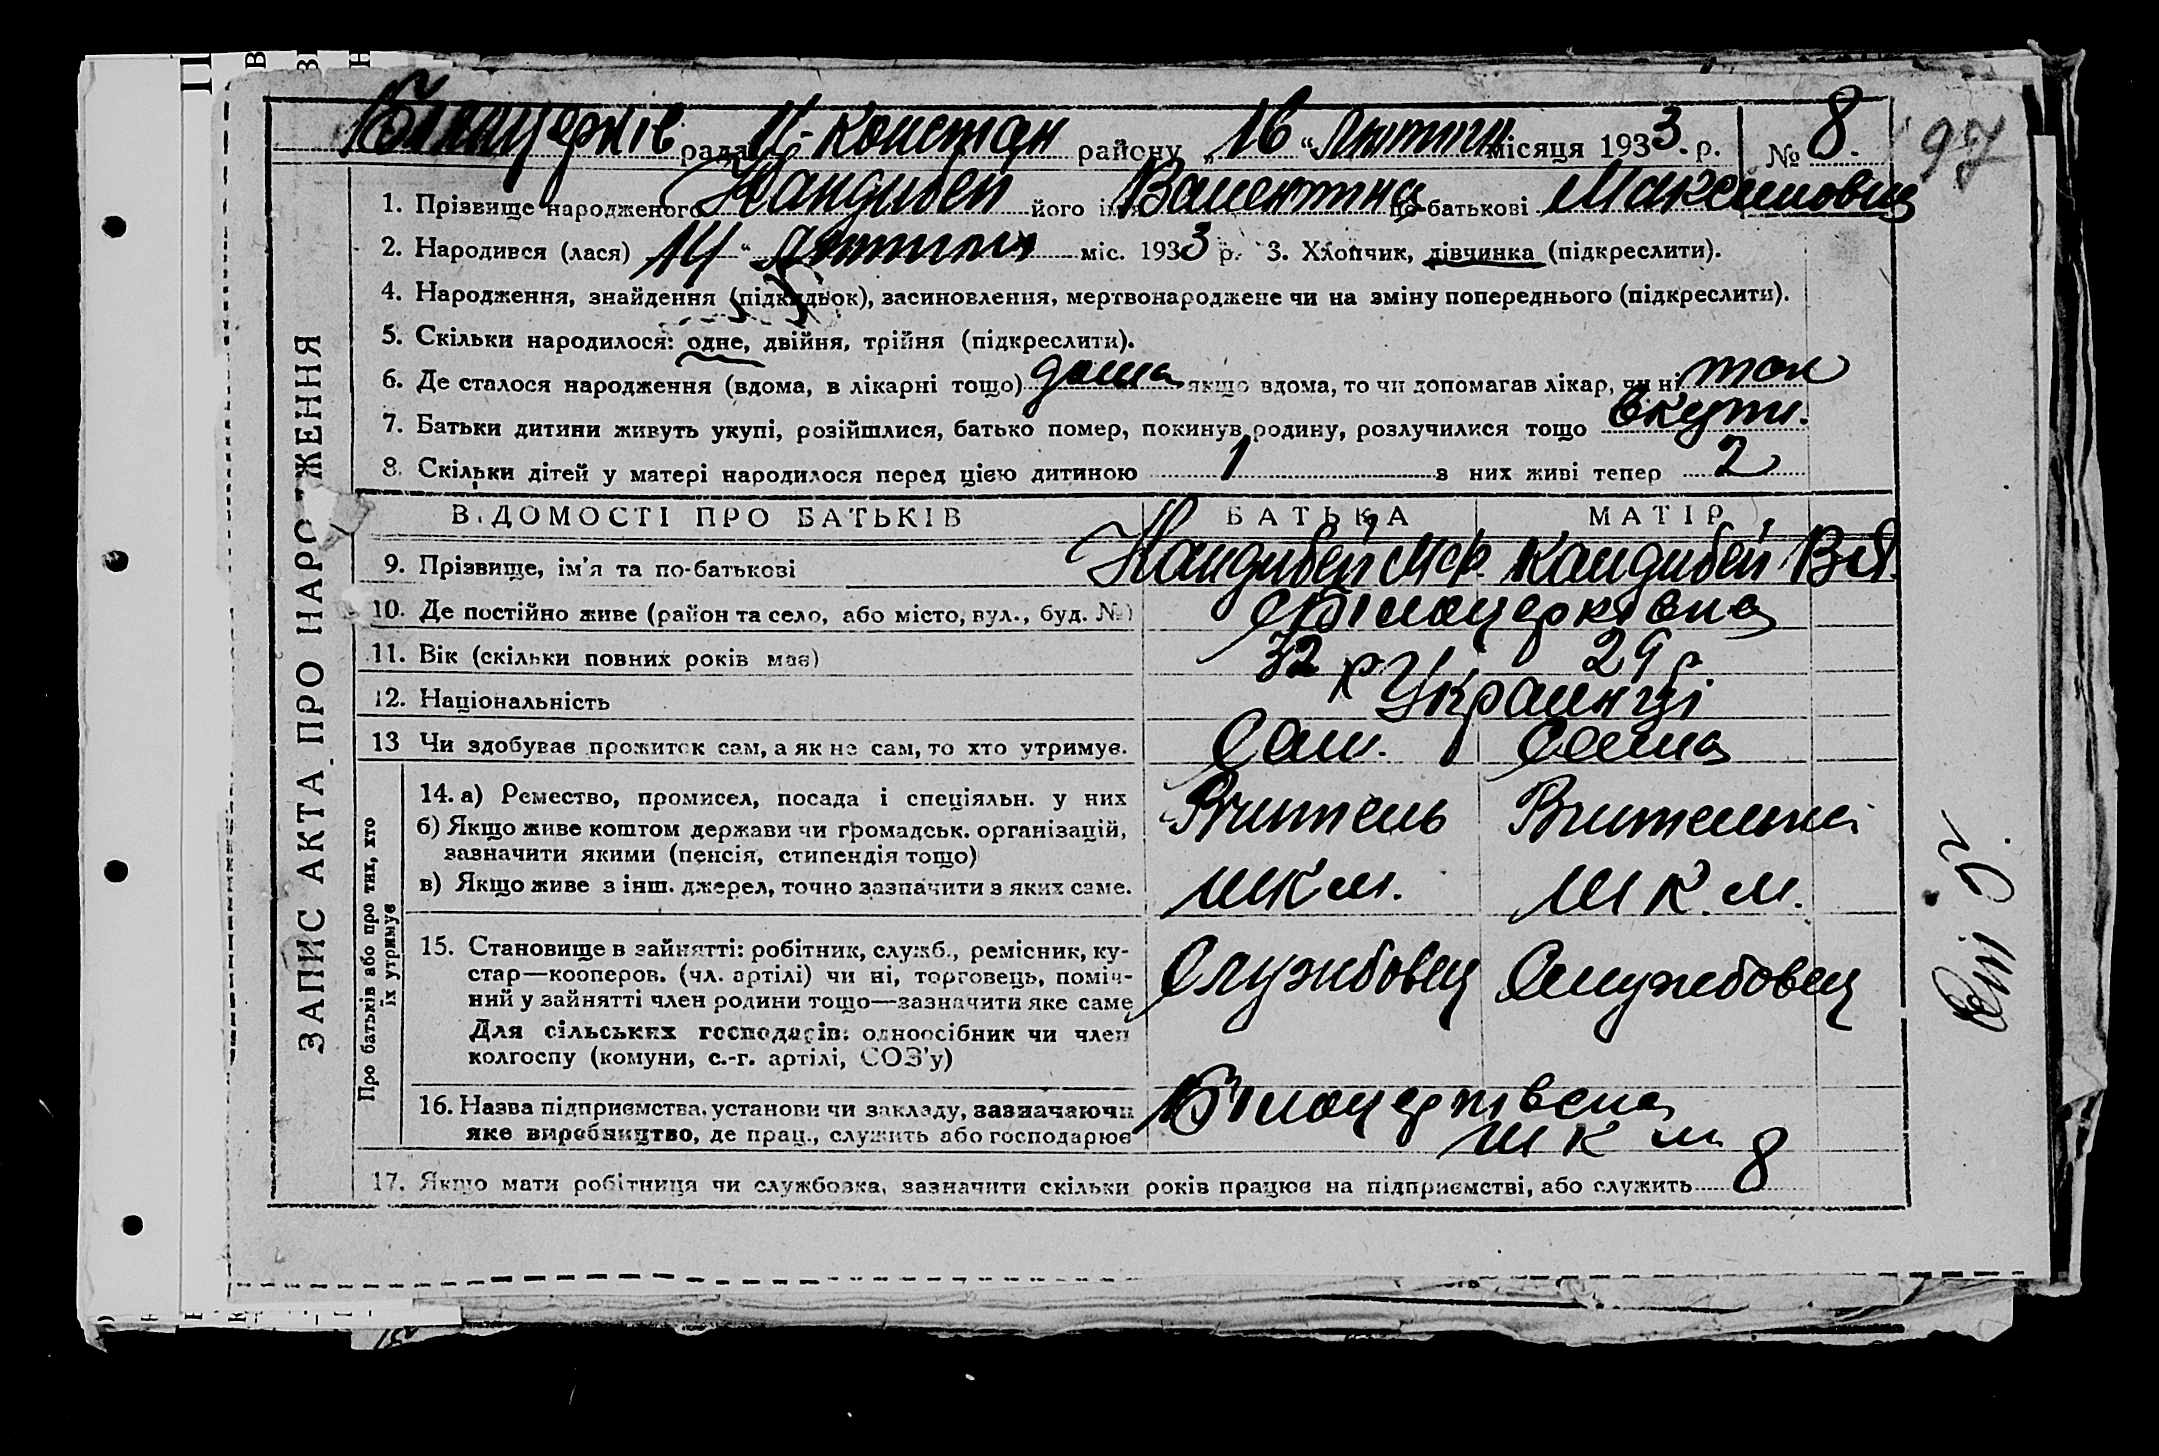 Білоцерків рада К-Констан району „16“ Лютого місяця 1933 р. № 8. 97
ЗАПИС АКТА ПРО НАРОДЖЕННЯ
1. Прізвище народженого Кандибей його ім Валентина по-батькові Максимовна
2. Народився (лася) 14 “ Лютого міс. 1933 р. 3. Хлопчик, дівчинка (підкреслити).
4. Народження, знайдення (підкидьок), засиновлення, мертвонароджене чи на зміну попереднього (підкреслити).
5. Скільки народилося: одне, двійня, трійня (підкреслити).
6. Де сталося народження (вдома, в лікарні тощо) дома якщо вдома, то чи допомагав лікар, чи ні так
7. Батьки дитини живуть укупі, розійшлися, батько помер, покинув родину, розлучилися тощо вкупі.
8. Скільки дітей у матері народилося перед цією дитиною 1 з них живі тепер 2
ВІДОМОСТІ ПРО БАТЬКІВ БАТЬКА МАТІР
9. Прізвище, ім’я та по-батькові Кандибей Кандибей
10. Де постійно живе (район та село, або місто, вул., буд. №) Білоцерківка
11. Вік (скільки повних років має) 32 р 29 р
12. Національність Украинці
13 Чи здобуває прожиток сам, а як не сам, то хто утримує. Сам. Сама
Про батьків або про тих, хто
їх утримує
14. а) Ремество, промисел, посада і спеціяльн. у них Вчитель Вчителька
б) Якщо живе коштом держави чи громадськ. організацій,
зазначити якими (пенсія, стипендія тощо)
в) Якщо живе з інш. джерел, точно зазначити з яких саме. ШКМ. ШК.М.
15. Становище в зайнятті: робітник, служб., ремісник, ку-
стар—кооперов. (чл. артілі) чи ні, торговець, поміч- Службовец Службовец
ний у зайнятті член родини тощо—зазначити яке саме
Для сільських господарів: одноосібник чи член
колгоспу (комуни, с.-г. артілі, СОЗ’у)
16. Назва підприємства, установи чи закладу, зазначаючи Білоцерківська
яке виробництво, де прац., служить або господарює ШКМ
17. Якщо мати робітниця чи службовка, зазначити скільки років працює на підприємстві, або служить 8